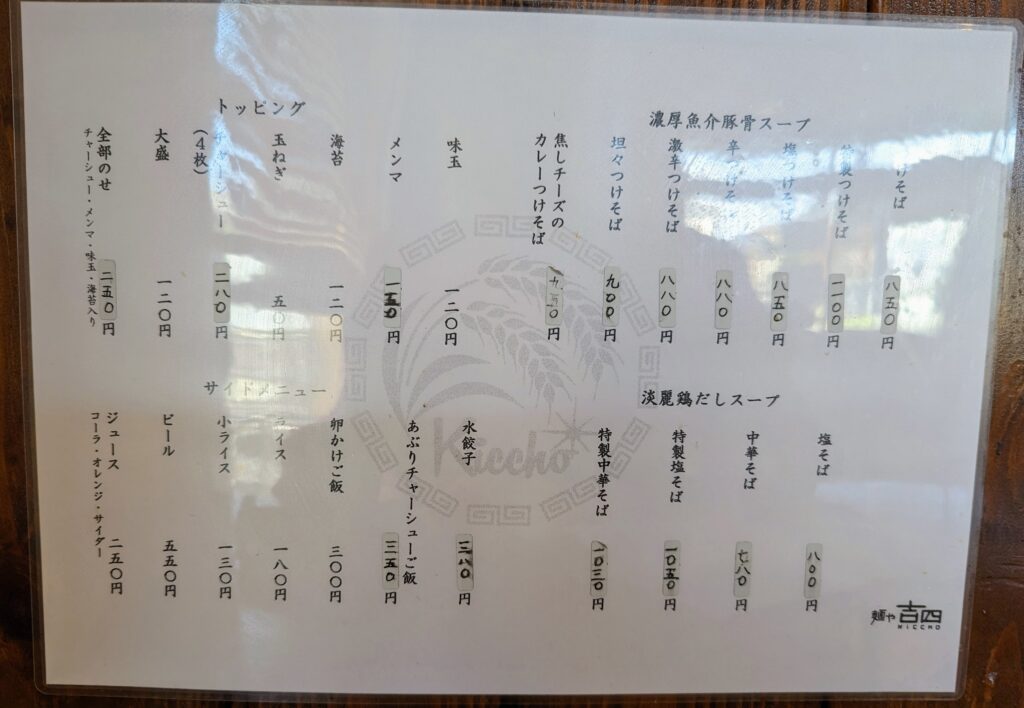 濃厚魚介豚骨スープ
けそば 八五〇円
特製つけそば 一一〇〇円
塩つけそば 八五〇円
辛つけそば 八八〇円
激辛つけそば 八八〇円
坦々つけそば 九〇〇円
焦しチーズの
カレーつけそば 九五〇円
淡麗鶏だしスープ
塩そば 八〇〇円
中華そば 七八〇円
特製塩そば 一〇五〇円
特製中華そば 一〇三〇円
トッピング
味玉 一二〇円
メンマ 一五〇円
海苔 一二〇円
玉ねぎ 五〇円
チャーシュー
(4枚) 二八〇円
大盛 一二〇円
全部のせ 二五〇円
チャーシュー・メンマ・味玉・海苔入り
サイドメニュー
水餃子 三八〇円
あぶりチャーシューご飯 三五〇円
卵かけご飯 三〇〇円
ライス 一八〇円
小ライス 一三〇円
ビール 五五〇円
ジュース 二五〇円
コーラ・オレンジ・サイダー
Kiccho
麺や 吉四
KICCHO